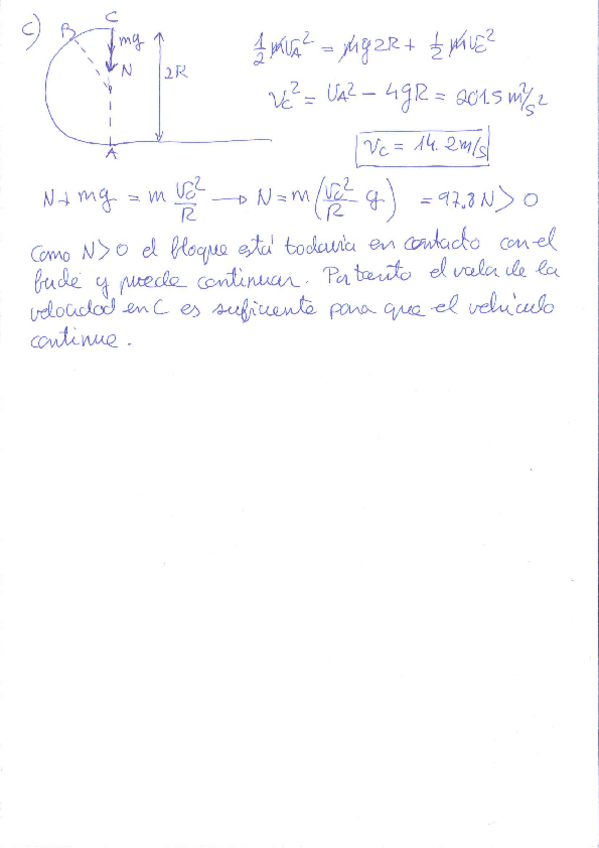 c)
B
C
mg
N
2R
A
1/2 mv_A² = mg2R + 1/2 mv_C²
v_C² = v_A² - 4gR = 201.5 m²/s²
v_C = 14.2 m/s
N + mg = m v_C²/R → N = m(v_C²/R - g) = 97.8 N > 0
Como N>0 el bloque está todavía en contacto con el
bucle y puede continuar. Por tanto el valor de la
velocidad en C es suficiente para que el vehículo
continue.